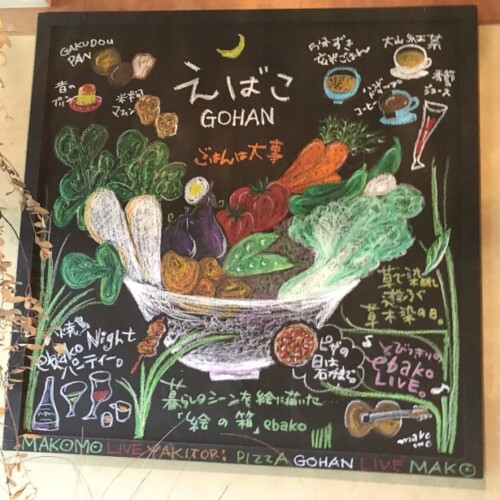 GAKUDOU
PAN
昔の
プリン
米粉
マフィン
えばこ
GOHAN
ごはんは大事
大山紅茶
季節
ジュース
ハンド
ドリップ
コーヒー
草で染めて
草木染の日。
焼鳥
Night
ebako
ティー。
ピザの
日は
石がまで。
とびっきりの
ebako
LIVE。
暮らしのシーンを絵に描いた…
「絵の箱」ebako
mako
mo
MAKOMO LIVE YAKITORI PIZZA GOHAN LIVE MAKO